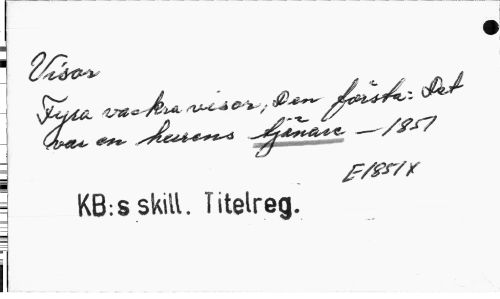 Visor
Fyra vackra visor, Den första: Det
var en herrens tjänare — 1851
E1851x
KB:s skill. Titelreg.